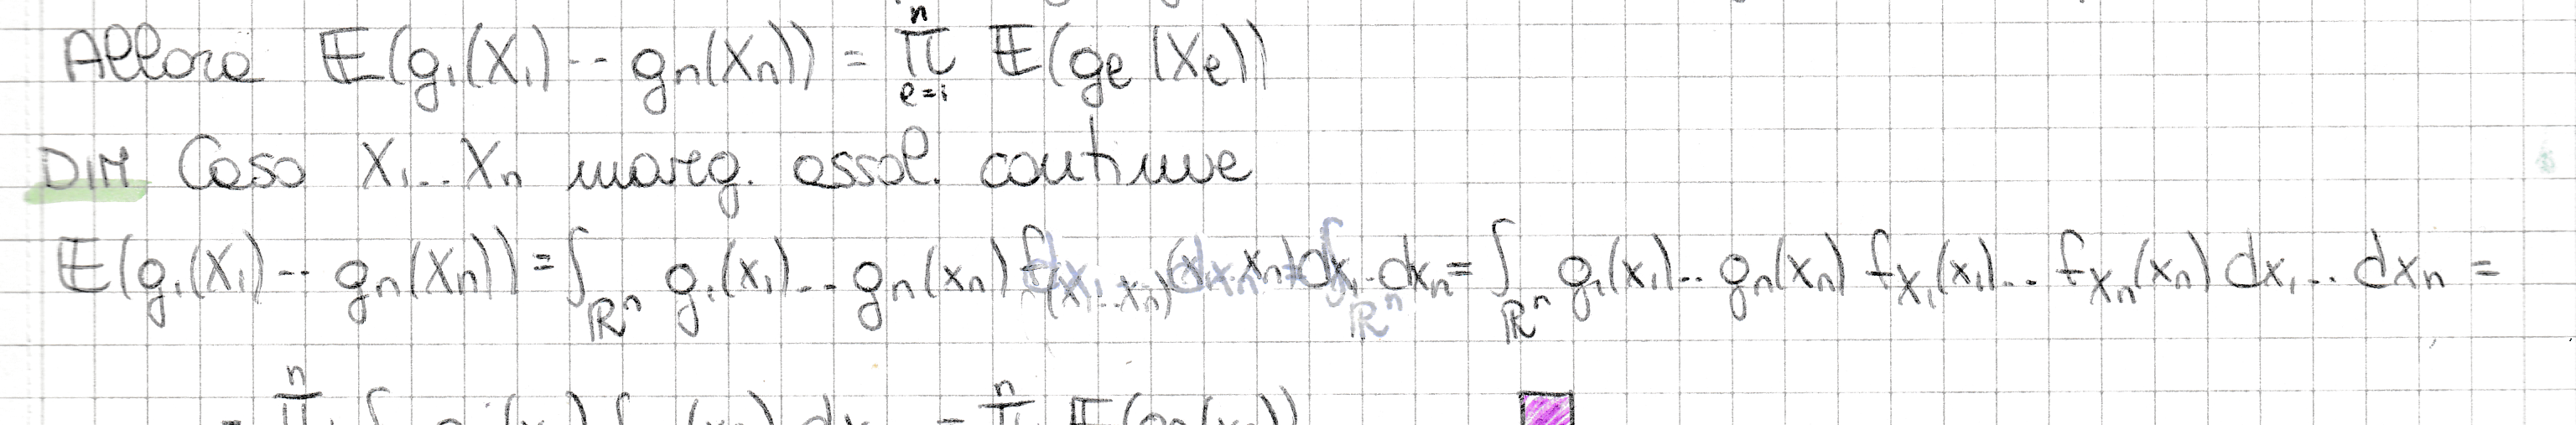 Allora E(g₁(X₁)--gₙ(Xₙ)) = ∏ₑ₌₁ⁿ E(gₑ(Xₑ))
DIM Caso X₁..Xₙ marg. assol. continue
E(g₁(X₁)--gₙ(Xₙ)) = ∫_ℝⁿ g₁(x₁)..gₙ(xₙ) f_(x₁..xₙ)(x₁..xₙ)dx₁..dxₙ = ∫_ℝⁿ g₁(x₁)..gₙ(xₙ) f_X₁(x₁)..f_Xₙ(xₙ) dx₁..dxₙ =